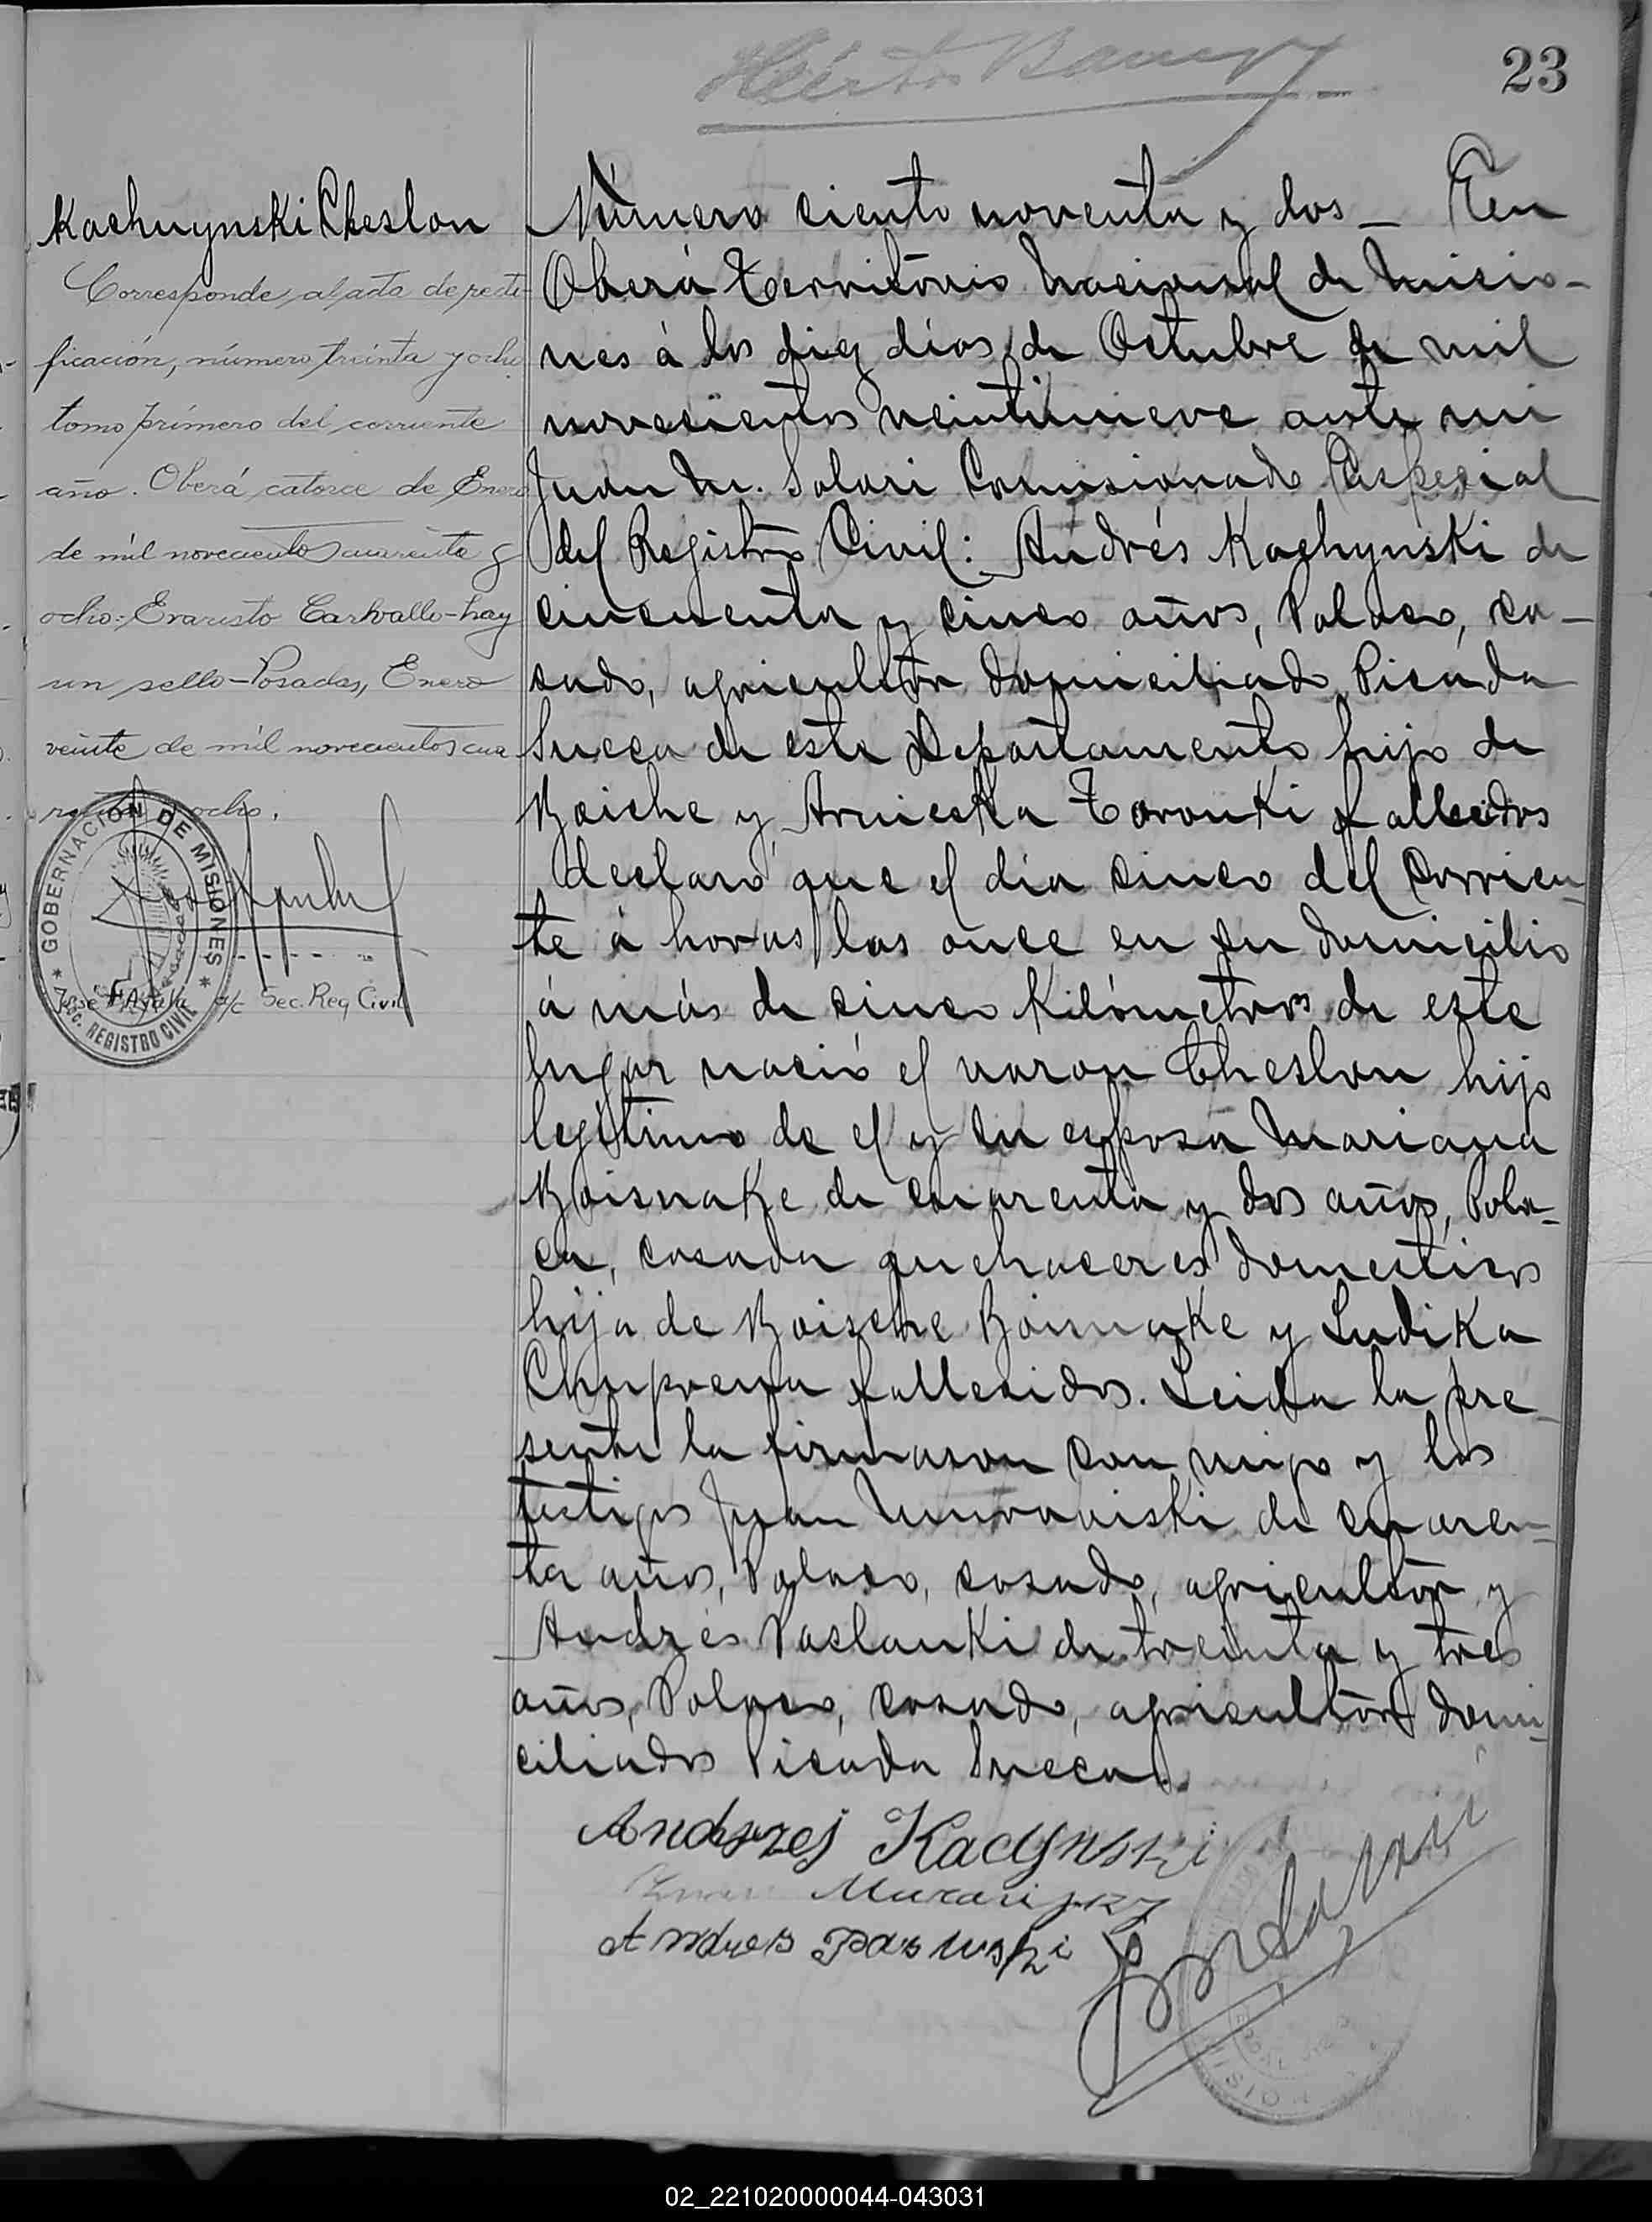 23
Kachuynski Cheslon
Corresponde al acta de recti-
ficación, número treinta y ocho
tomo primero del corriente
año. Oberá catorce de Enero
de mil novecientos cuarenta y
ocho: Evaristo Carvallo-hay
un sello-Posadas, Enero
veinte de mil novecientos cua
ocho.
GOBERNACION DE MISIONES
SEC. REGISTRO CIVIL
Jose F Ayala a/c Sec. Reg Civil
Número ciento noventa y dos _ En
Oberá Territorio Nacional de Misio-
nes á los diez dias de Octubre de mil
novecientos veintinueve ante mi
Juan M. Solari Comisionado Especial
del Registro Civil: Andrés Kachynski de
cincuenta y cinco años, Polaco, ca-
sado, agricultor domiciliado Picada
Sueca de este Departamento hijo de
Boiche y Arnieska Toronki fallecidos
declaró que el dia cinco del corrien-
te á horas las once en su domicilio
á más de cinco Kilómetros de este
lugar nació el varon Cheslon hijo
legitimo de el y su esposa Mariana
Boisnake de cuarenta y dos años, Pola-
ca, casada quehaceres domesticos
hija de Boische Boisnake y Ludika
Chuprena fallecidos. Leida la pre-
sente la firmaron con migo y los
testigos Juan Muravaiski de cuaren-
ta años, Polaco, casado, agricultor y
Andrés Paslauki de treinta y tres
años, Polaco, casado, agricultor domi-
ciliados Picada Sueca.
Andrzej Kaczynski